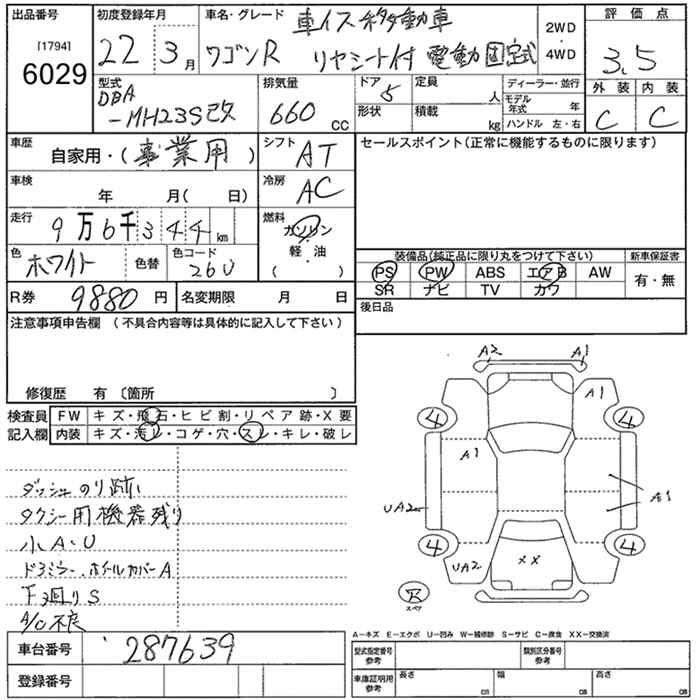 出品番号 初度登録年月 車名・グレード 評価点
[1794] 6029 22 3月 ワゴンR 車イス移動車 リヤシート付 電動固定式 2WD 4WD 3.5
型式 DBA-MH23S改 排気量 660 CC ドア 5 定員 人 ディーラー・並行 外装 内装
形状 積載 kg モデル年式 年 ハンドル 左・右 C C
車歴 自家用・(事業用) シフト AT セールスポイント(正常に機能するものに限ります)
車検 年 月( 日) 冷房 AC
走行 9万6千344km 燃料 ガソリン・軽・油 ( )
色 ホワイト 色替 色コード 26U 装備品(純品に限り丸をつけて下さい) 新車保証書
PS PW ABS エアB AW 有・無
SR ナビ TV カワ
R券 9880円 名変期限 月 日 後日品
注意事項申告欄(不具合内容等は具体的に記入して下さい)
修復歴 有〔箇所 〕
検査員 FW キズ・飛石・ヒビ割・リペア跡・X要
記入欄 内装 キズ・汚レ・コゲ・穴・スレ・キレ・破レ
A2 A1
A1
4 4
A1
A1
UA2
4 4
UA2 XX
スペア
ダッシュのり跡
タクシー用機器残り
小A・U
ドアミラー、ホイールカバーA
下廻りS
A/C不良
A-キズ E-エクボ U-凹み W-補修跡 S-サビ C-腐食 XX-交換済
車台番号 287639 型式指定番号 参考 類別区分番号 参考
登録番号 車庫証明用 参考 長さ cm 幅 cm 高さ cm